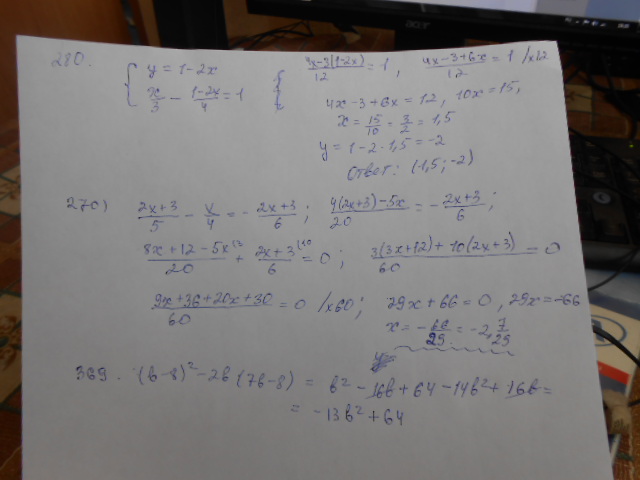 280.
{ y = 1-2x
x/3 - (1-2x)/4 = 1 { (4x-3(1-2x))/12 = 1, (4x-3+6x)/12 = 1 /x12
4x-3+6x = 12, 10x = 15,
x = 15/10 = 3/2 = 1,5
y = 1-2·1,5 = -2
Ответ: (1,5; -2)
270) (2x+3)/5 - x/4 = - (2x+3)/6; (4(2x+3)-5x)/20 = - (2x+3)/6;
(8x+12-5x)/20 + (2x+3)/6 = 0; (3(3x+12)+10(2x+3))/60 = 0
(9x+36+20x+30)/60 = 0 /x60; 29x+66 = 0, 29x = -66
x = - 66/29 = -2, 7/29
369. (b-8)² - 2b(7b-8) = b² - 16b + 64 - 14b² + 16b =
= -13b² + 64
acer